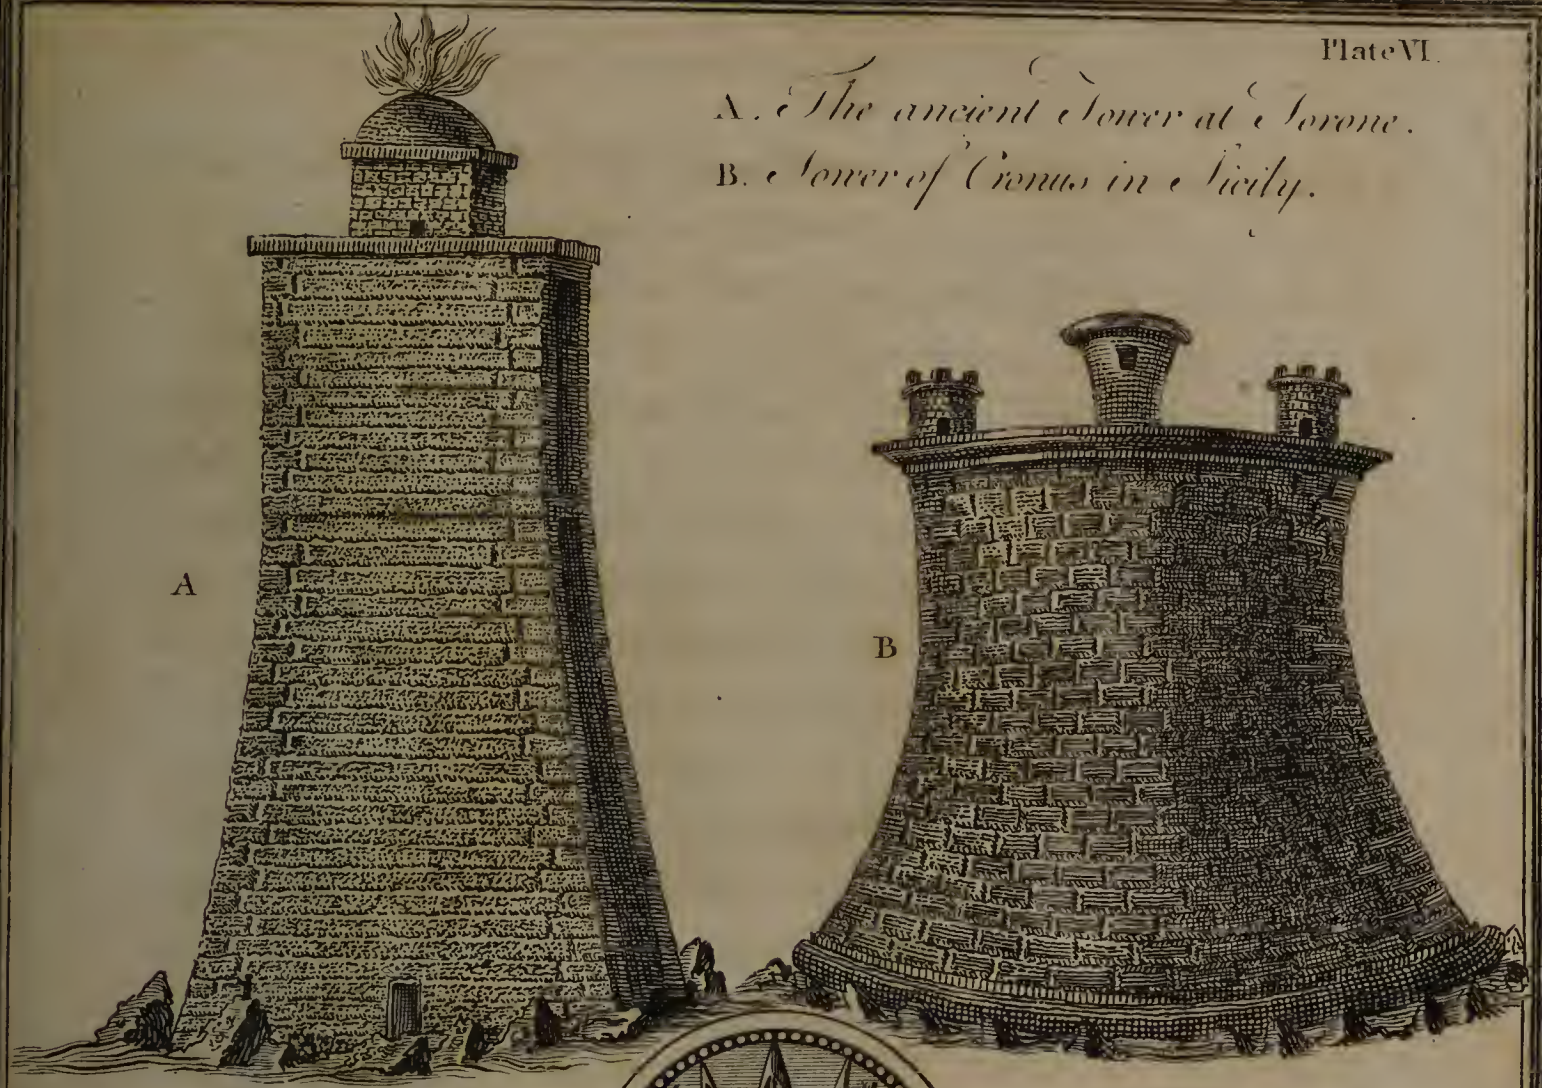 Plate VI.
A. The ancient Tower at Torone.
B. Tower of Cronus in Sicily.
A
B